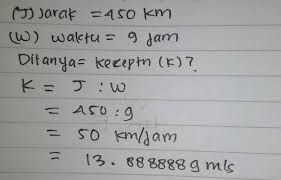 (J) Jarak = 450 km
(W) waktu = 9 jam
Ditanya = keceptn (K)?
K = J : W
= 450 : 9
= 50 km/jam
= 13.888889 m/s